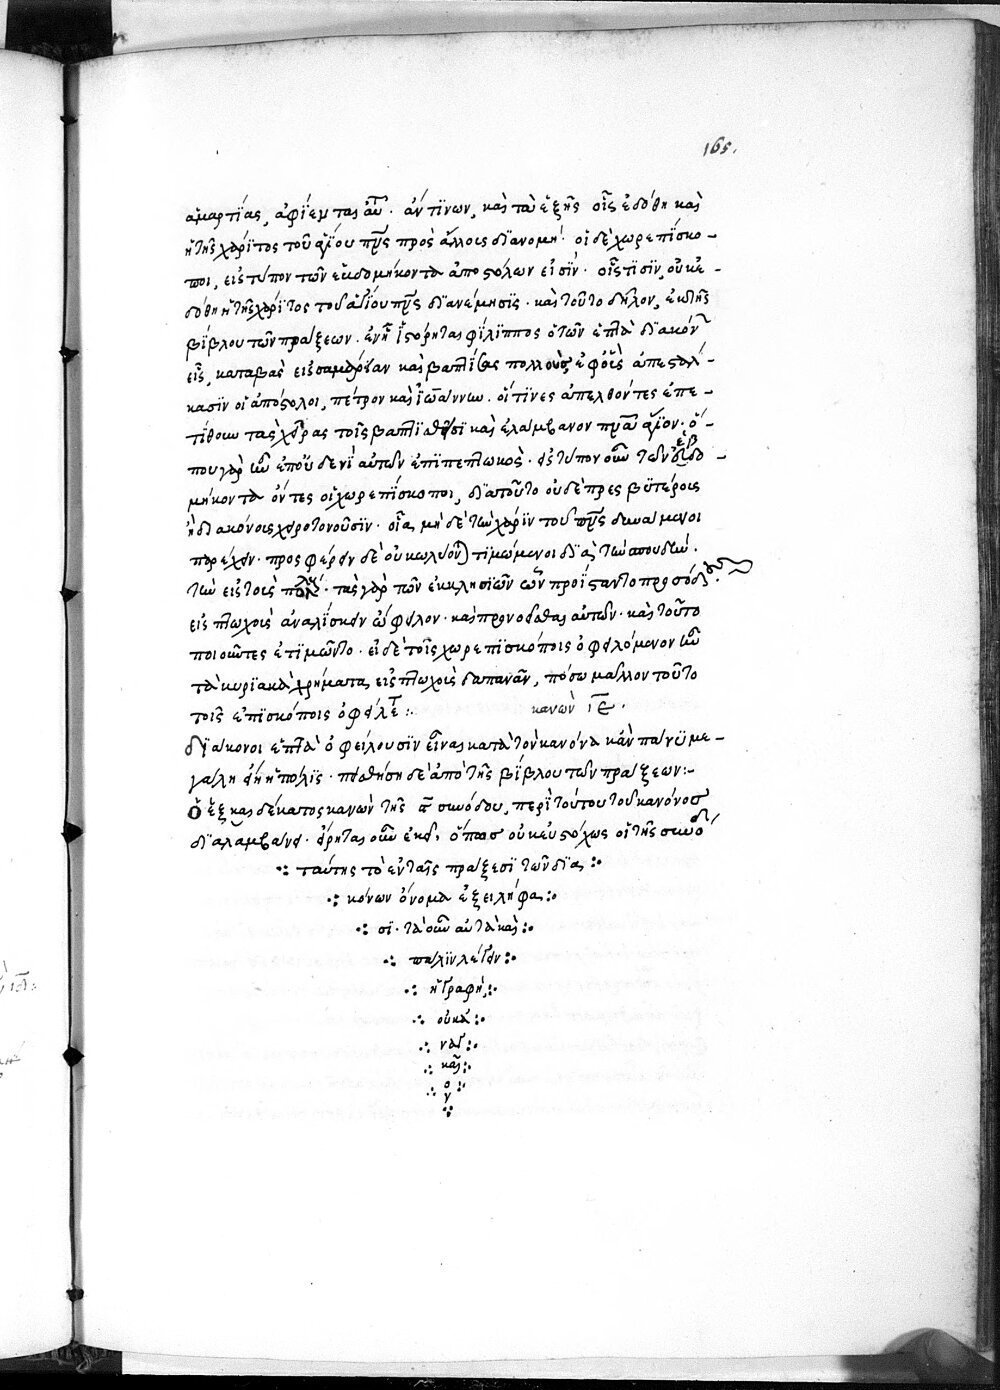 165.
ἁμαρτίας, ἀφίενται αὐτ. ἄν τινων, καὶ τὰ ἑξῆς οἷς ἐδόθη καὶ
ἡ τῆς χάριτος τοῦ ἁγίου πνς πρὸς ἄλλοις διανομή. οἱ δὲ χωρεπίσκο-
ποι, εἰς τύπον τῶν ἑβδομήκοντα ἀποστόλων εἰσίν. οἷς τισὶν, οὐκ ἐ-
δόθη ἡ τῆς χάριτος τοῦ ἁγίου πνς διανέμησις. καὶ τοῦτο δῆλον, ἐκ τῆς
βίβλου τῶν πράξεων. ἐν ᾗ ἱστόρηται φίλιππος ὁ τῶν ἑπτὰ διακόν
εἷς, καταβὰς εἰς σαμάρειαν καὶ βαπτίσας πολλοὺς, ἐφ' οἷς ἀπεστάλ-
κασιν οἱ ἀπόστολοι, πέτρον καὶ ἰωάννην. οἵτινες ἀπελθόντες ἐπε-
τίθουν τὰς χεῖρας τοῖς βαπτισθεῖσι καὶ ἐλάμβανον πνα ἅγιον. ὅ-
που γὰρ ἦν ἐπ' οὐδενὶ αὐτῶν ἐπιπεπτωκός. εἰς τύπον οὖν τῶν ἑβδο-
μήκοντα ὄντες οἱ χωρεπίσκοποι, διατοῦτο οὐδὲ πρεσβυτέροις
ἢ διακόνοις χειροτονοῦσιν. οἷα μὴ δὲ τὴν χάριν τοῦ πνς δυνάμενοι
παρέχειν. προσφέρειν δὲ οὐ κωλύον τιμώμενοι διὰ τὴν σπουδὴν.
τὴν εἰς τοὺς πτωχ. τὰς γὰρ τῶν ἐκκλησιῶν ὧν προΐσταντο προσόδ.
εἰς πτωχοὺς ἀναλίσκειν ὤφειλον. καὶ προνοεῖσθαι αὐτῶν. καὶ τοῦτο
ποιοῦντες ἐτιμῶντο. εἰ δὲ τοῖς χωρεπισκόποις ὀφειλόμενον ἦν
τὰ κυριακὰ χρήματα, εἰς πτωχοὺς δαπανᾶν, πόσῳ μᾶλλον τοῦτο
τοῖς ἐπισκόποις ὀφείλετ :. κανὼν ιε.
διάκονοι ἑπτὰ ὀφείλουσιν εἶναι κατὰ τὸν κανόνα κἂν πάνυ με-
γάλη εἴη ἡ πόλις. πεισθήσῃ δὲ ἀπὸ τῆς βίβλου τῶν πράξεων:-
Ὁ ἑξκαιδέκατος κανὼν τῆς ϛ συνόδου, περὶ τούτου τοῦ κανόνος
διαλαμβάνει. εἴρηται οὖν ἐκεῖ, ὅπως οὐκ εὐστόχως οἱ τῆς συνόδ
ταύτης τὸ ἐν ταῖς πράξεσι τῶν δια
κόνων ὄνομα ἐξειλήφα
σι. τὰ οὖν αὐτὰ καὶ
πάλιν λέγειν
ἡ γραφὴ,
οὐκ ἀ
ναγ
καῖ
ο
ν